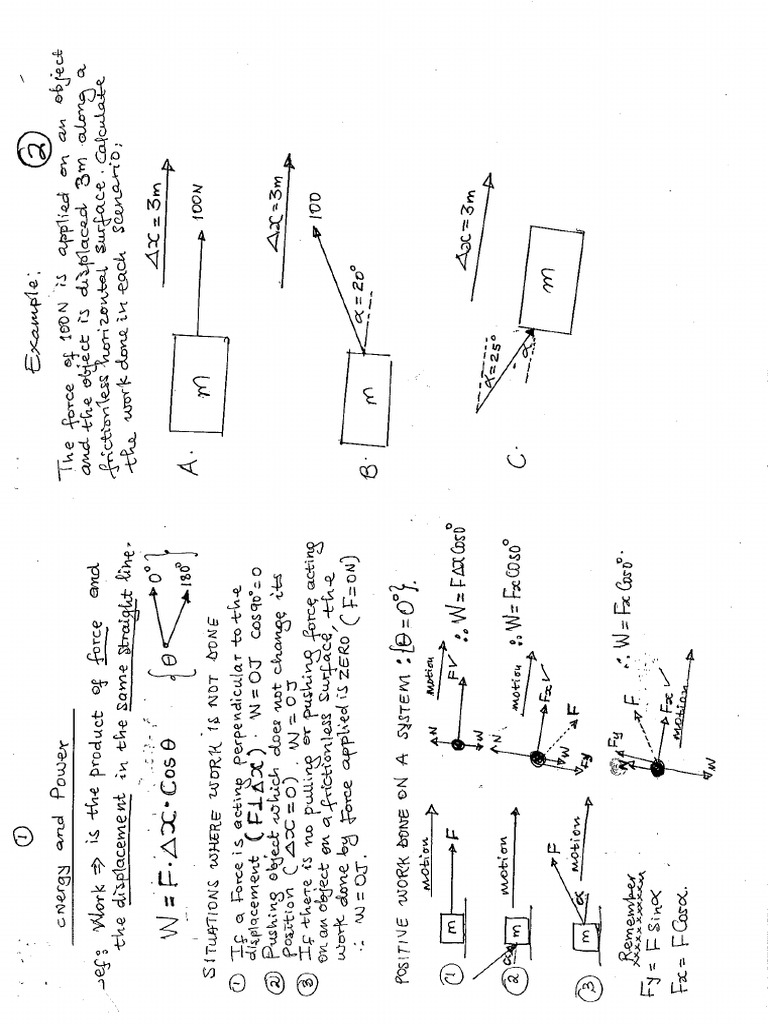 ①
eNergy and Power
ef: Work ⇒ is the product of force and
the displacement in the same straight line.
W = F·Δx·Cosθ
{θ 0° 180°}.
SITUATIONS WHERE WORK IS NOT DONE
① If a Force is acting perpendicular to the
displacement (F⊥Δx). W=0J cos90°=0
② Pushing object which does not change its
Position (Δx=0). W=0J
③ If there is no pulling or pushing force acting
on an object on a frictionless surface, the
work done by force applied is ZERO (F=0N)
∴ W=0J.
POSITIVE WORK DONE ON A SYSTEM: {θ=0°}.
① m F motion
N W F✓ motion
∴ W=FΔxCos0°
② α m motion
N W Fy F Fx✓ motion
∴ W=FxCos0°
③ m α F motion
Fy N F Fx✓ W motion
∴ W=FxCos0°.
Remember
xxxxxxxxxxx
Fy = F Sinα
Fx = F Cosα.
②
Example:
The force of 100N is applied on an object
and the object is displaced 3m along a
frictionless horizontal surface. Calculate
the work done in each scenario;
A. m 100N Δx=3m
B. m α=20° 100 Δx=3m
C. α=25° α m Δx=3m